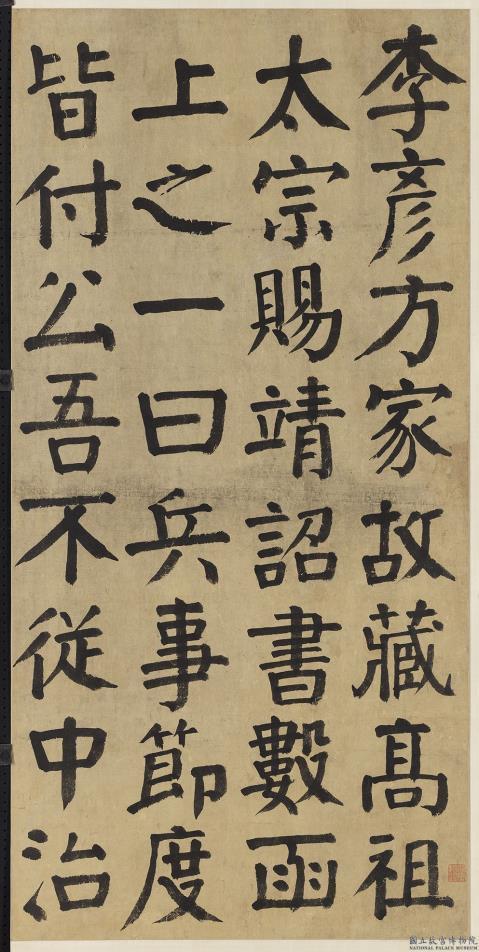 李彥方家故藏高祖
太宗賜靖詔書數函
上之一曰兵事節度
皆付公吾不從中治
國立故宮博物院
NATIONAL PALACE MUSEUM